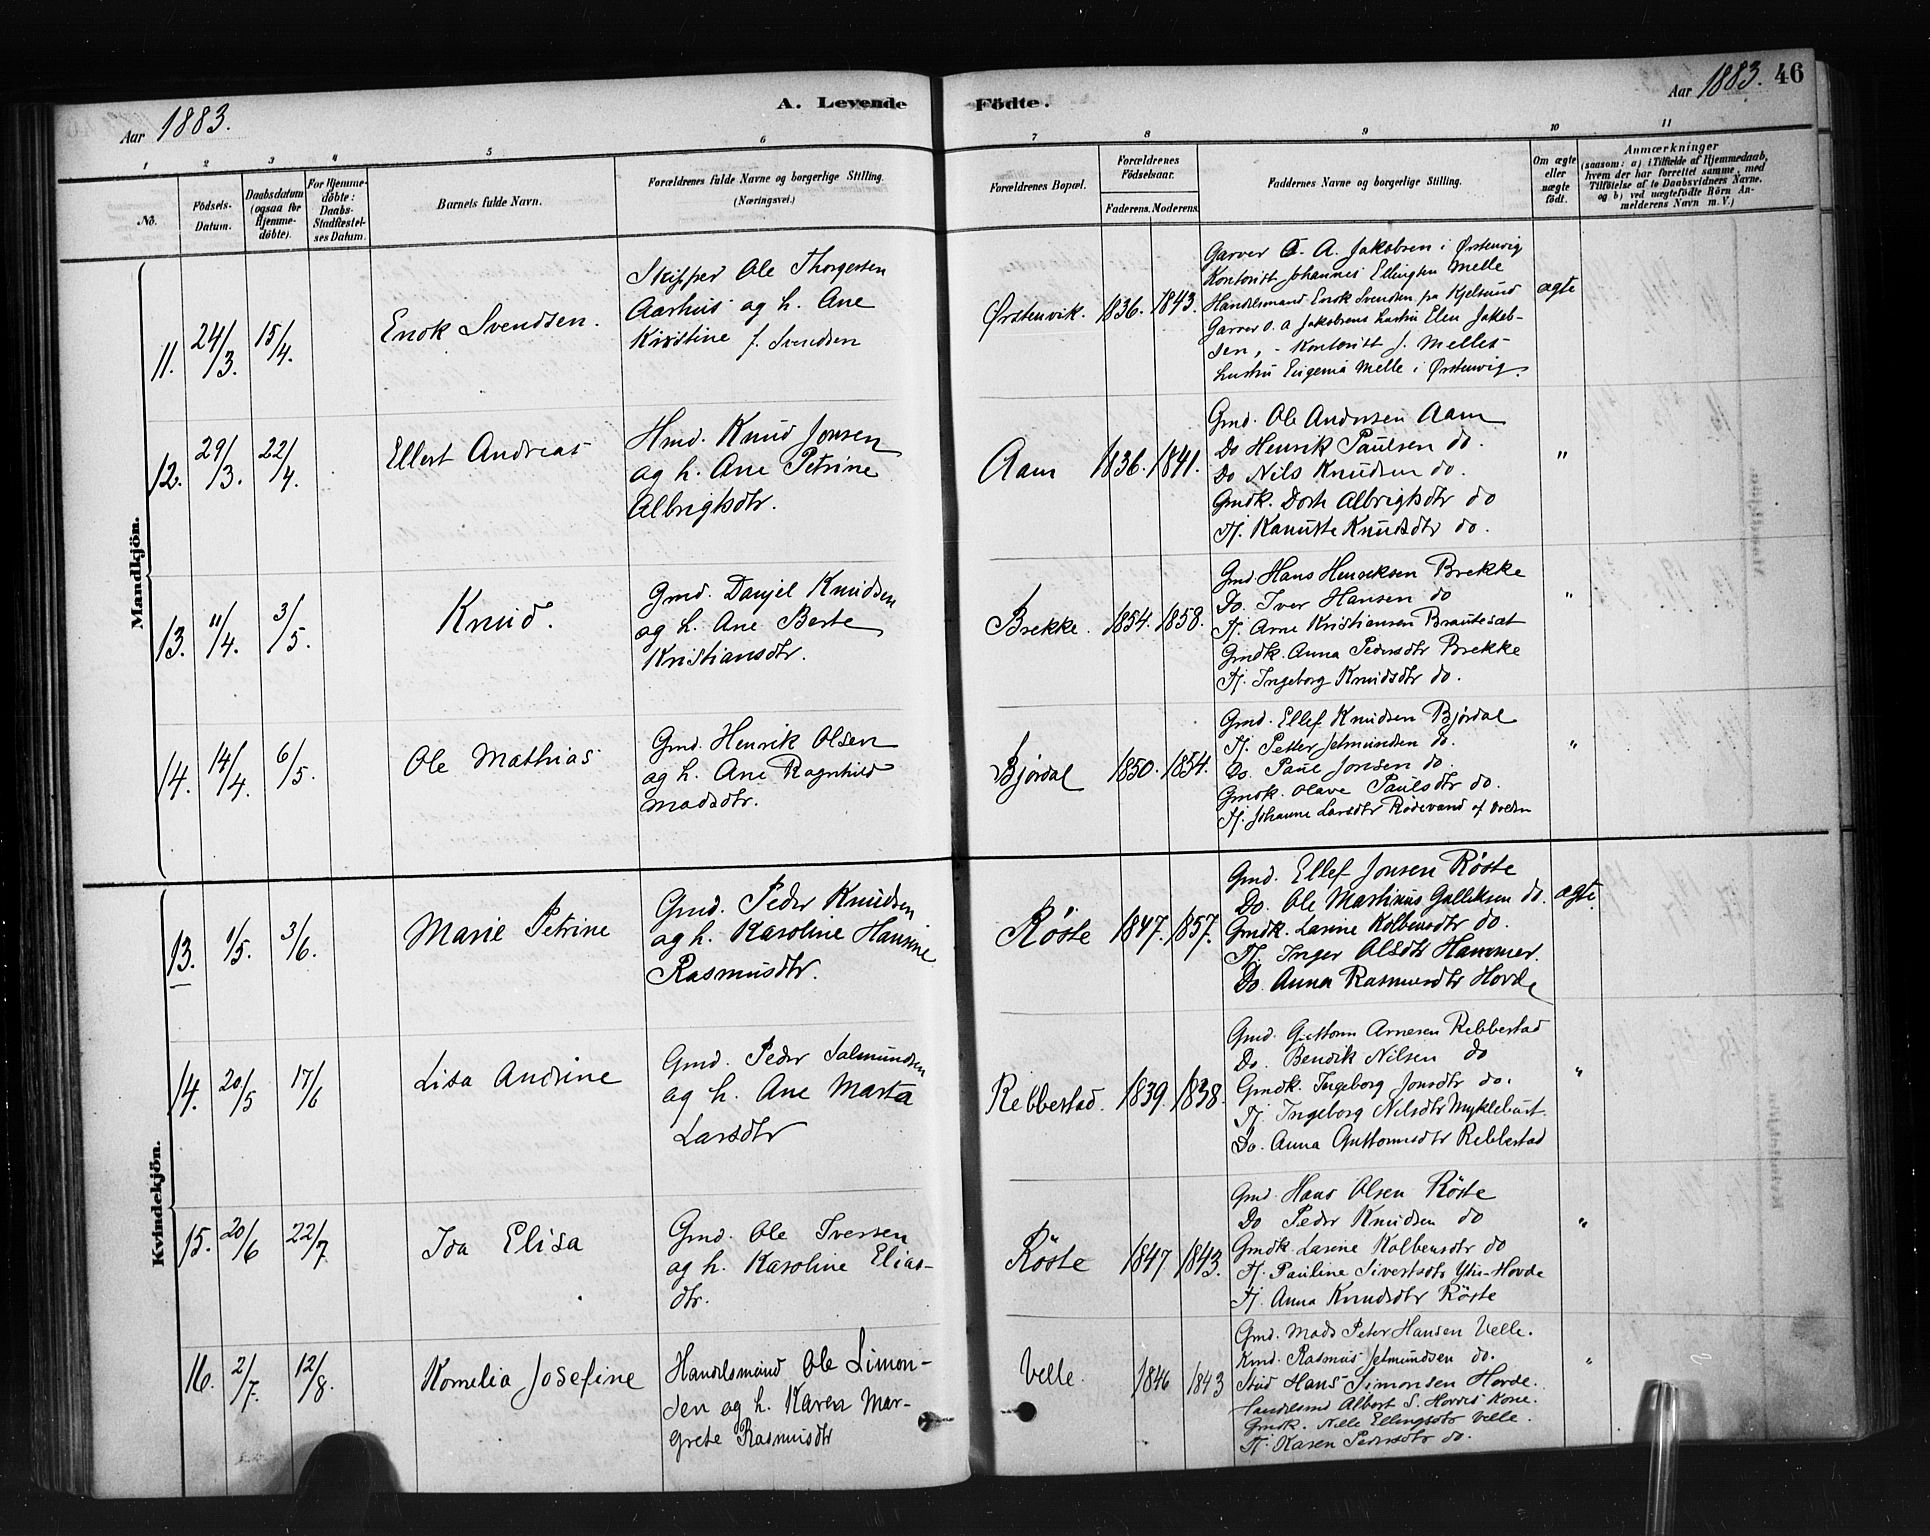 Aar 1883.
A. Levende
Födte.
Aar 1883. 46
1 2 3 4 5 6 7 8 9 10 11
No.
Födsels-Datum.
Daabsdatum (ogsaa for Hjemmedöbte).
For Hjemmedöbte: Daabs-Stadfæstelses Datum.
Barnets fulde Navn.
Forældrenes fulde Navne og borgerlige Stilling.
(Næringsvei.)
Forældrenes Bopæl.
Forældrenes Födselsaar.
Faderens. Moderens.
Faddernes Navne og borgerlige Stilling.
Om ægte eller uægte födt.
Anmærkninger
(saasom: a) i Tilfælde af Hjemmedaab,
hvem der har forrettet samme, med
Tilföielse af to Daabsvidners Navne.
og b) ved uægtefödte Börn An-
melderens Navn m. V.)
Mandkjön.
11. 24/3. 15/4. Enok Svendsen.
Skipper Ole Thorgersen
Aarhus og h. Ane
Kirstine f. Svendsen
Ørstenvik. 1836. 1843.
Garver O. A. Jakobsen i Ørstenvig
Kontorist Johannes Ellingsen Melle
Handelsmand Enok Svendsen paa Kjelsund
Garver O. A Jakobsens hustru Elen Jakob-
sen, - Kontorist J. Melles
hustru Eugenia Melle i Ørstenvig.
ægte
12. 29/3. 22/4. Ellert Andreas
Hmd. Knud Jonsen
og h. Ane Petrine
Albrigtsdtr.
Aam 1836. 1841.
Gmd. Ole Andersen Aam
Do Henrik Paulsen do.
Do Nils Knudsen do.
Gmdk. Dorte Albrigtsdtr do
Pj. Kanutte Knudsdtr do.
"
13. 11/4. 3/5. Knud.
Gmd. Danjel Knudsen
og h. Ane Berte
Kristiansdtr.
Brekke. 1854. 1858.
Gmd Hans Henriksen Brekke
Do. Iver Hansen do
Pj. Arne Kristiansen Brautesæt
Gmdk. Anna Pedersdtr Brekke
Pj. Ingeborg Knudsdtr do.
"
14. 14/4. 6/5. Ole Mathias
Gmd. Henrik Olsen
og h. Ane Ragnhild
Madsdtr.
Bjørdal 1850. 1854.
Gmd. Ellef Knudsen Bjørdal
Pj. Petter Jetmundsen do.
Do. Paul Jonsen do.
Gmdk. Olave Paulsdtr do.
Pj. Johanne Larsdtr Rødevand af Volden
"
Kvindekjön.
13. 1/5. 3/6. Marie Petrine
Gmd. Peder Knudsen
og h. Karoline Hansine
Rasmusdtr.
Røste 1847. 1857.
Gmd. Ellef Jonsen Røste
Do. Ole Martinus Gulliksen do.
Gmdk. Larine Kolbensdtr do.
Pj. Inger Olsdtr Hammer.
Do. Anna Rasmusdtr Hovde
ægte
14. 20/5 17/6 Lisa Andrine
Gmd. Peder Salmundsen
og h. Ane Marta
Larsdtr
Rebbestad. 1839. 1838.
Gmd. Guttorm Arnesen Rebbestad
Do. Bendik Nilsen do
Gmdk. Ingeborg Jonsdtr do.
Pj. Ingeborg Nilsdtr Myklebust.
Do. Anna Guttormsdtr Rebbestad
"
15. 20/6 22/7 Ida Elisa
Gmd. Ole Iversen
og h. Karoline Elias-
dtr.
Røste 1847 1843.
Gmd. Hans Olsen Røste
Do Peder Knudsen do
Gmdk. Larine Kolbensdtr do
Pj. Pauline Sivertsdtr Ytre-Hovde
Pj. Anna Knudsdtr Røste
"
16. 2/7. 12/8. Kornelia Josefine
Handelsmand Ole Simon-
sen og h. Karen Mar-
grete Rasmusdtr
Velle. 1846 1843
Gmd. Mads Peter Hansen Velle.
Kmd. Rasmus Jetmundsen do.
Stud Hans Simonsen Hovde.
Handelsmd Albert S. Hovdes Kone.
Gmdk. Nelle Ellingsdtr Velle.
Pj. Karen Pedersdtr do.
"